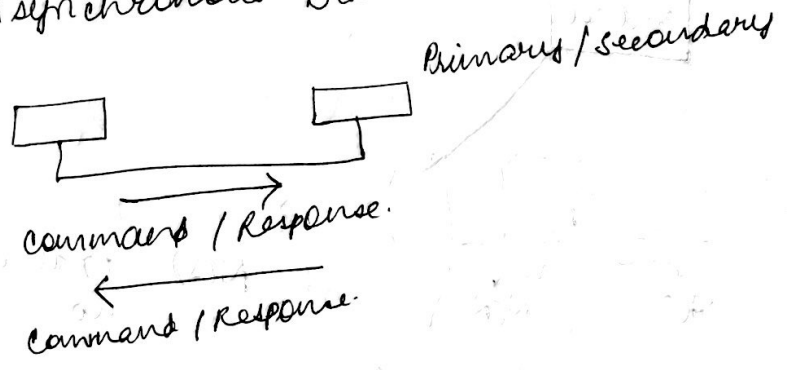 Primary / secondary
Command / Response.
Command / Response.